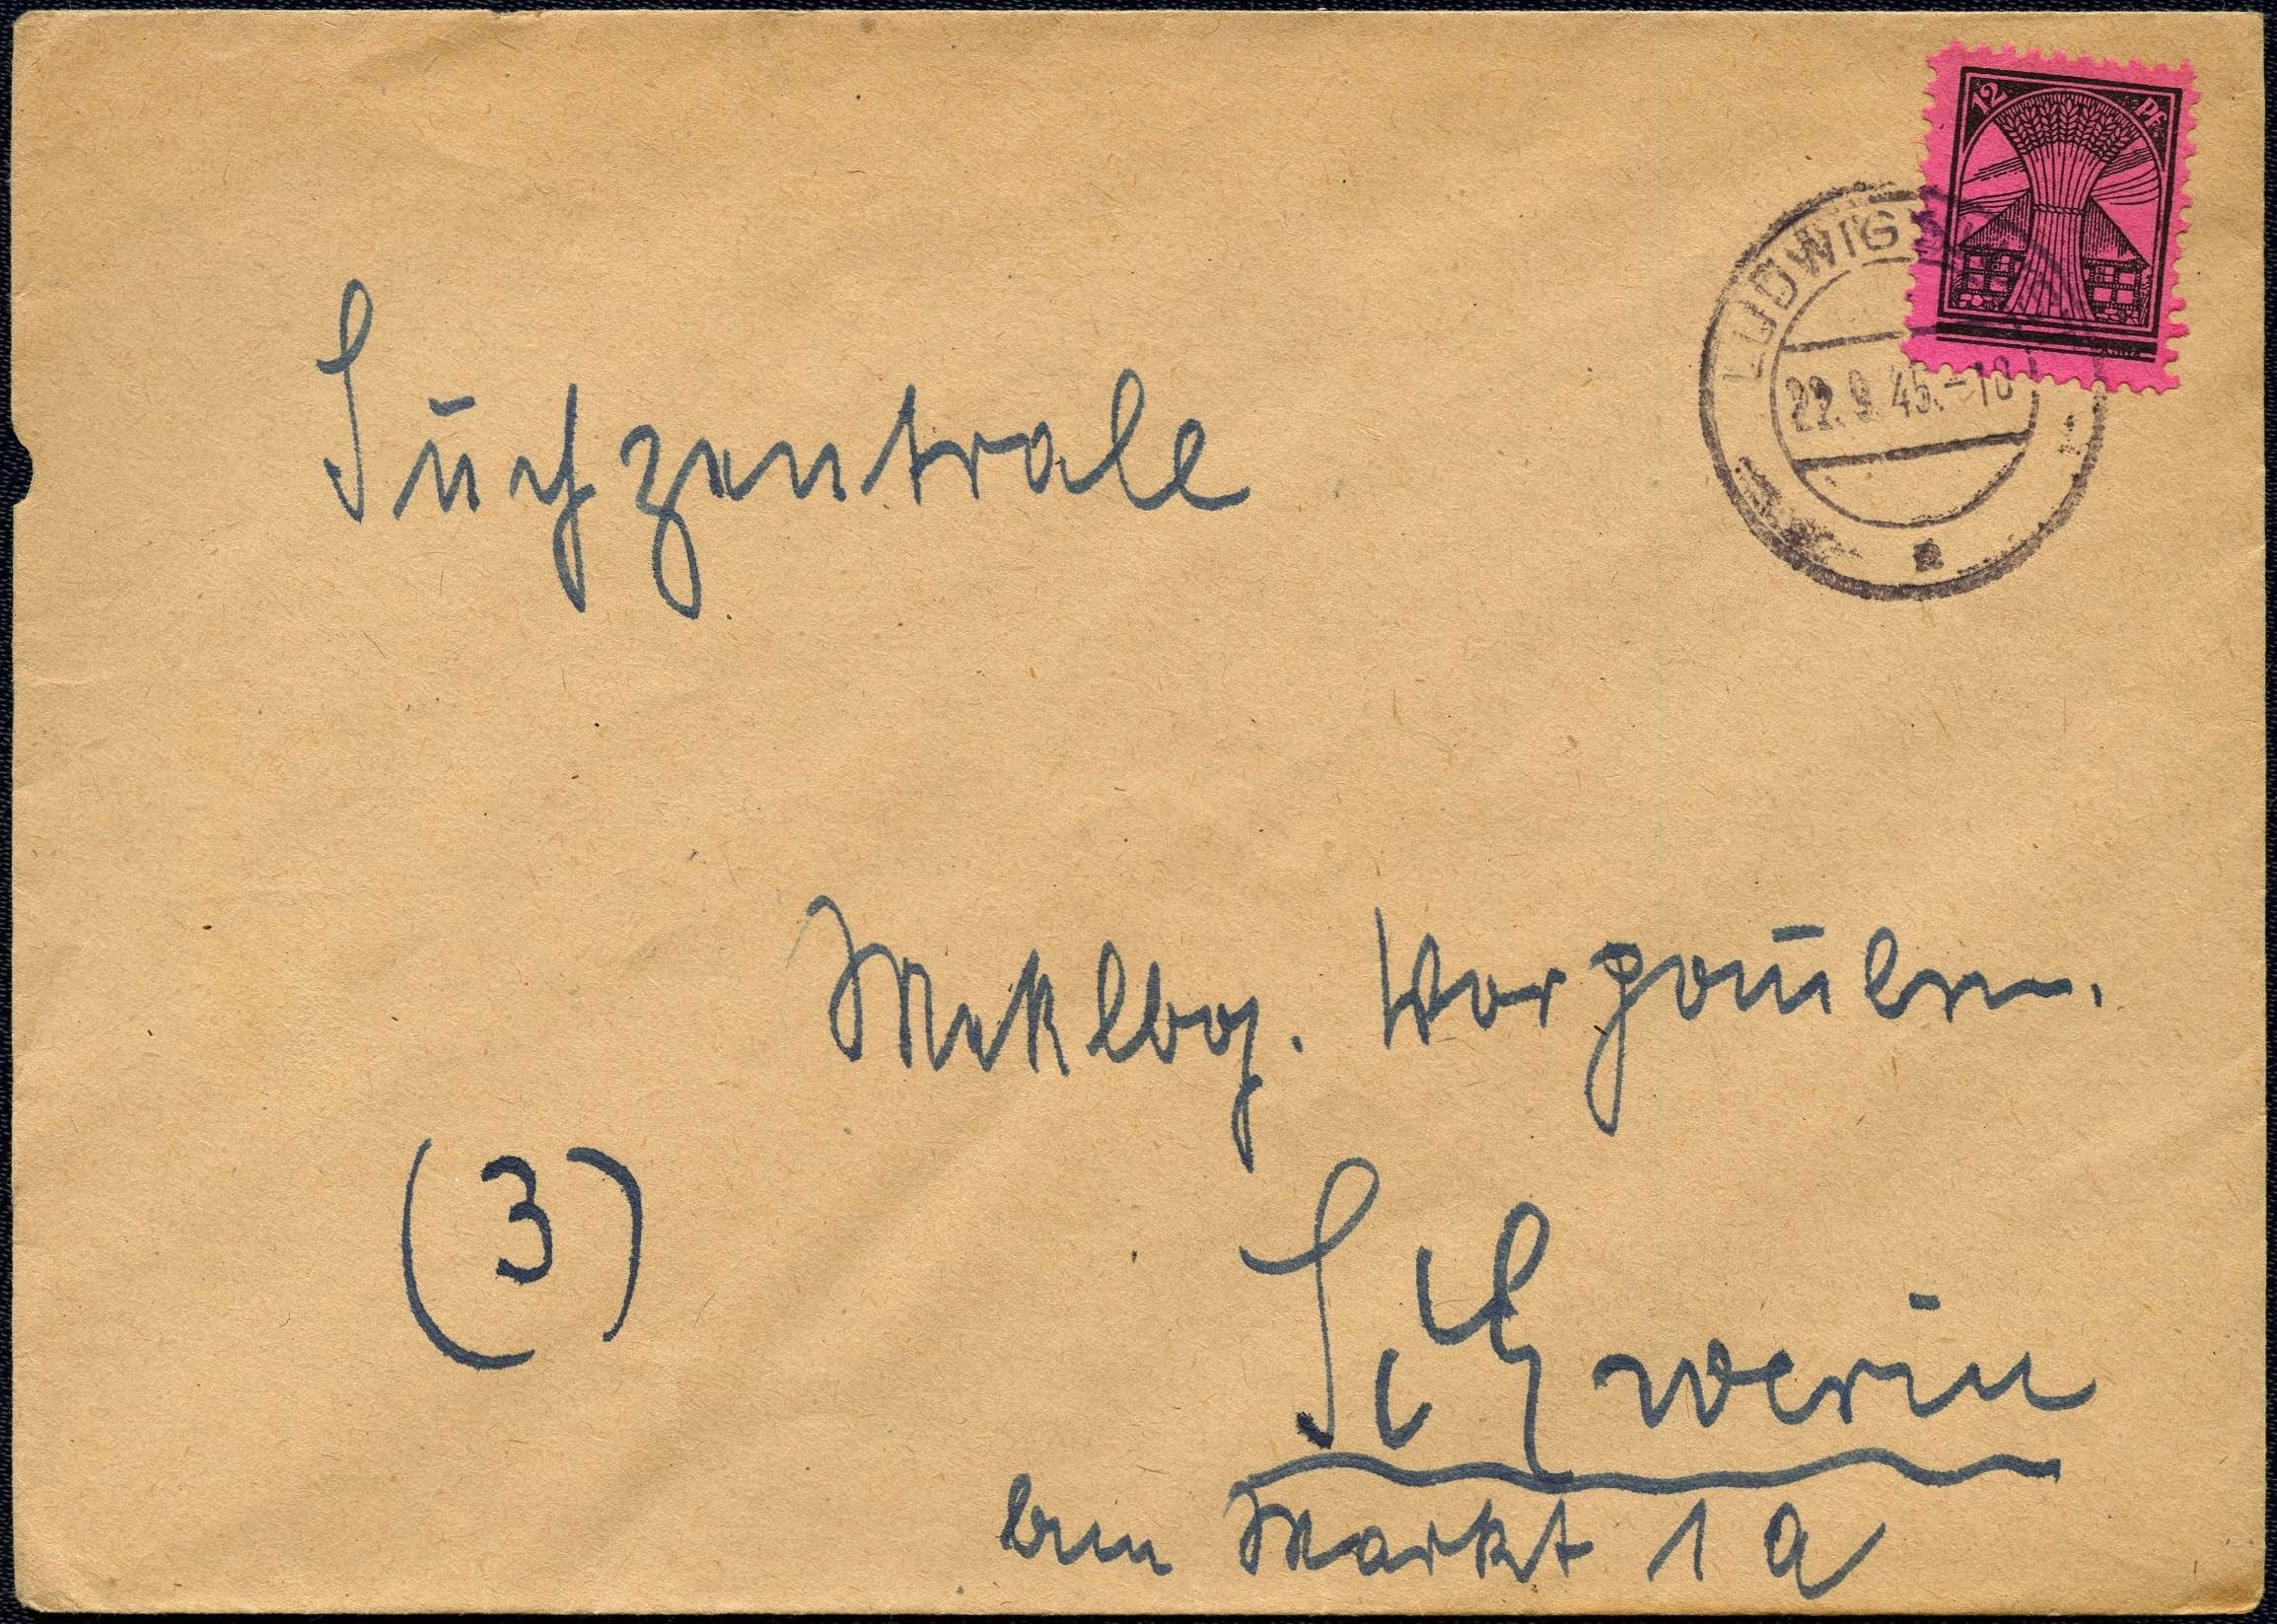 12 Pf
LUDWIGS
22.9.45.-18
Suchzentrale
Meklbg. Vorpomern.
(3)
Schwerin
Markt 1 a